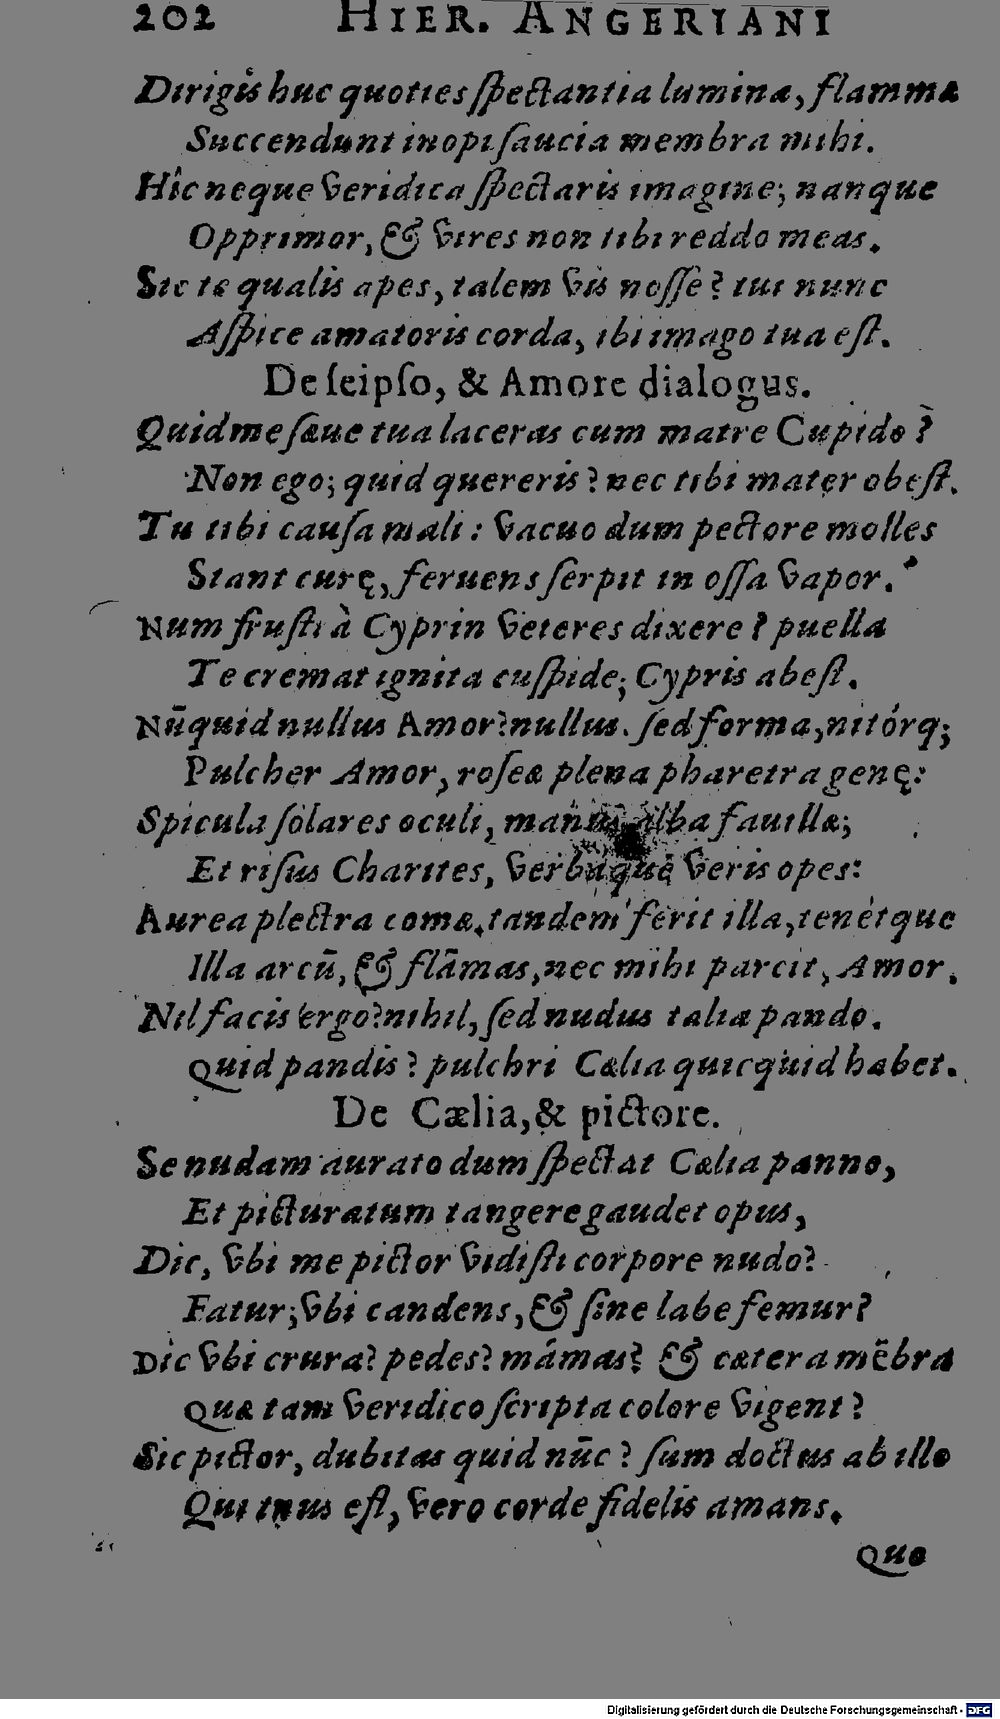 202 HIER. ANGERIANI
Dirigis huc quoties ſpectantia lumina, flammæ
Succendunt inopi ſaucia membra mihi.
Hîc neque veridica ſpectaris imagine; nanque
Opprimor, & vires non tibi reddo meas.
Sic te qualis apes, talem vis noſſe? tui nunc
Aſpice amatoris corda, ibi imago tua eſt.
De ſeipſo, & Amore dialogus.
Quid me ſæue tua laceras cum matre Cupido?
Non ego; quid quereris? nec tibi mater obeſt.
Tu tibi cauſa mali: vacuo dum pectore molles
Stant curę, feruens ſerpit in oſſa vapor.
Num fruſtrà Cyprin veteres dixere? puella
Te cremat ignita cuſpide; Cypris abeſt.
Nūquid nullus Amor? nullus. ſed forma, nitórq;
Pulcher Amor, roſeæ plena pharetra genę:
Spicula ſolares oculi, manus alba fauillæ;
Et riſus Charites, verbaque veris opes:
Aurea plectra comæ, tandem ferit illa, tenétque
Illa arcū, & flāmas, nec mihi parcit, Amor.
Nil facis ergo? nihil, ſed nudus talia pando.
Quid pandis? pulchri Cælia quicquid habet.
De Cælia, & pictore.
Se nudam aurato dum ſpectat Cælia panno,
Et picturatum tangere gaudet opus,
Dic, vbi me pictor vidiſti corpore nudo?
Fatur; vbi candens, & ſine labe femur?
Dic vbi crura? pedes? mámas? & cætera mēbra
Quæ tam veridico ſcripta colore vigent?
Sic pictor, dubitas quid nūc? ſum doctus ab illo
Qui tuus eſt, vero corde fidelis amans.
Quo
Digitalisierung gefördert durch die Deutsche Forschungsgemeinschaft - DFG